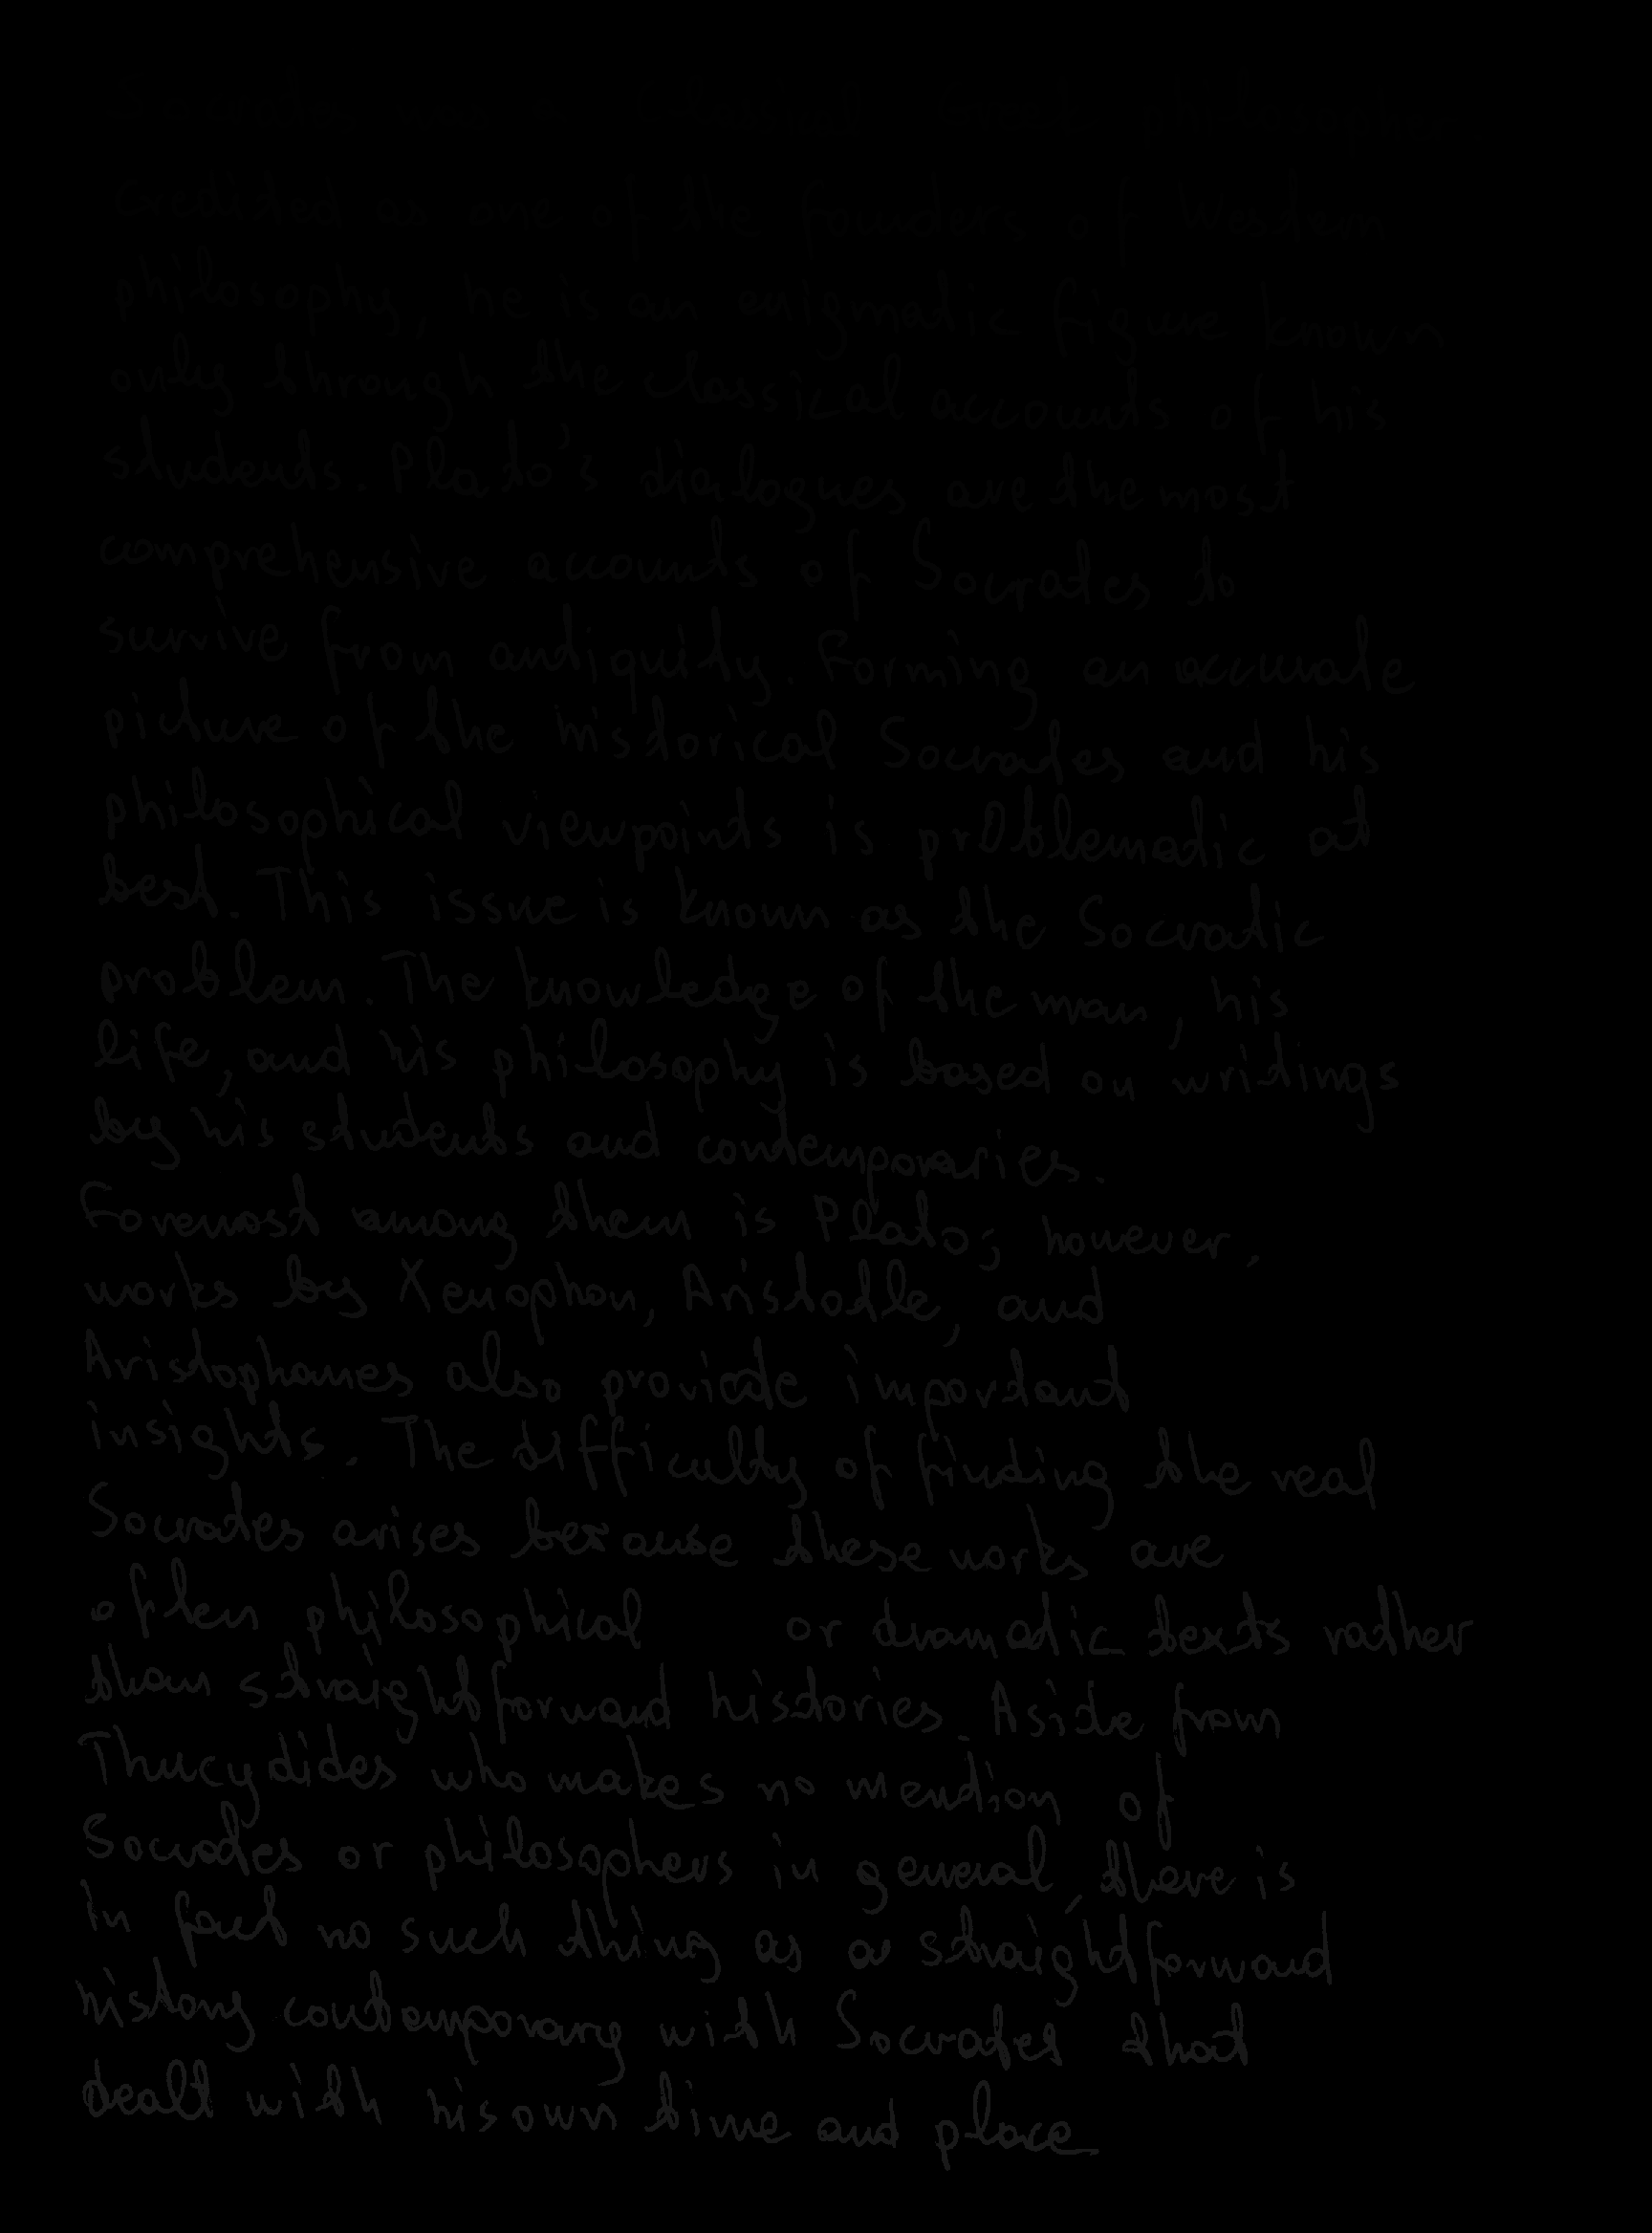 Socrates was a Classical Greek philosopher
credited as one of the founders of Western
philosophy, he is an enigmatic figure known
only through the classical accounts of his
students. Plato's dialogues are the most
comprehensive accounts of Socrates to
survive from antiquity. Forming an accurate
picture of the historical Socrates and his
philosophical viewpoints is problematic at
best. This issue is known as the Socratic
problem. The knowledge of the man, his
life, and his philosophy is based on writings
by his students and contemporaries.
Foremost among them is Plato; however,
works by Xenophon, Aristotle, and
Aristophanes also provide important
insights. The difficulty of finding the real
Socrates arises because these works are
often philosophical or dramatic texts rather
than straightforward histories. Aside from
Thucydides who makes no mention of
Socrates or philosophers in general, there is
in fact no such thing as a straightforward
history contemporary with Socrates that
dealt with his own time and place